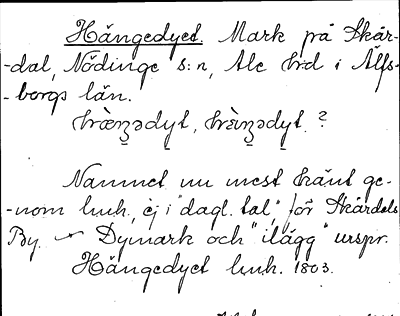 Hängedyet. Mark på Skår-
-dal, Nödinge s:n, Ale hrd i Älfs-
-borgs län.
Namnet nu mest känt ge-
-nom luuh., ej i "dagl. tal", för Skårdals
By. Dymark och "ilägg" urspr.
Hängedyet luuh. 1803.